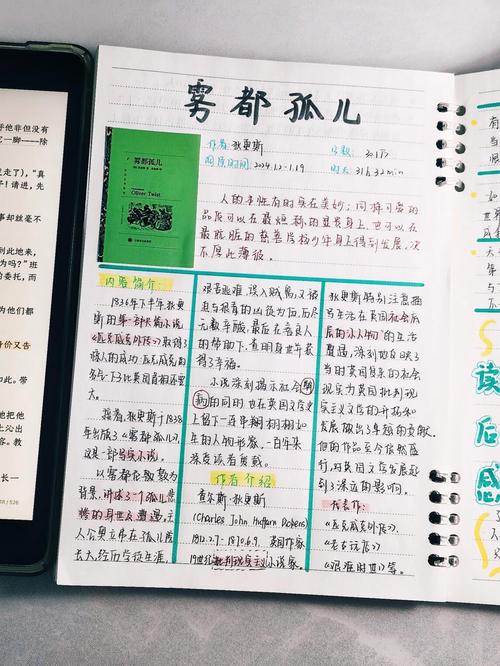 雾都孤儿
作者：狄更斯
字数：30.1万
阅读时间：2024.1.2-1.19
时长：316.32min
雾都孤儿
Oliver Twist
人的本性有时实在美妙；同样可爱的
品质可以在最短称的显贵身上，也可以在
最肮脏的慈善学校少年身上得到发展，决
不厚此薄彼。
内容简介：
1836年下半年，狄更
斯的第一部长篇小说
《匹克威克外传》取得了
惊人的成功，匹克威克的
名气一下子比英国首相还要
大。
接着，狄更斯于1838
年出版了《雾都孤儿》，
这是一部写实小说。
以雾都伦敦为
背景，讲述了一个孤儿悲
惨的身世及遭遇，主
人公奥立弗在孤儿院
长大，经历学徒生涯，
艰苦逃难，误入贼窝，又被
迫与狠毒的凶徒为伍，历尽
无数辛酸，最后在善良人
的帮助下，查明身世并获
得了幸福。
小说深刻揭示社会
的同时，也在英国文学史
上留下一连串栩栩如
生的人物形象，一百年来
深受读者赞戴。
作者介绍
查尔斯·狄更斯
(Charles John Huffam Dickens)
1812.2.7-1870.6.9，英国作家
19世纪批判现实主义小说家。
狄更斯特别注意描
写生活在英国社会底
层的“小人物”的生活
遭遇，深刻地反映了当
时英国复杂的社会
现实，为英国批判现
实主义文学的开拓和
发展做出了卓越的贡献。
他的作品至今依然盛
行，对英国文学发展起
到了深远的影响。
代表作：
《匹克威克外传》、
《老古玩店》、
《艰难时世》等。
读
后
感
乎他非但没有
它一脚——除
走了），“真
子！请进，先
事却丝毫不
到此地来，
吗？”班
委托，而
我们都
价又告
如此。带
他把他
必出去
客。教
长一